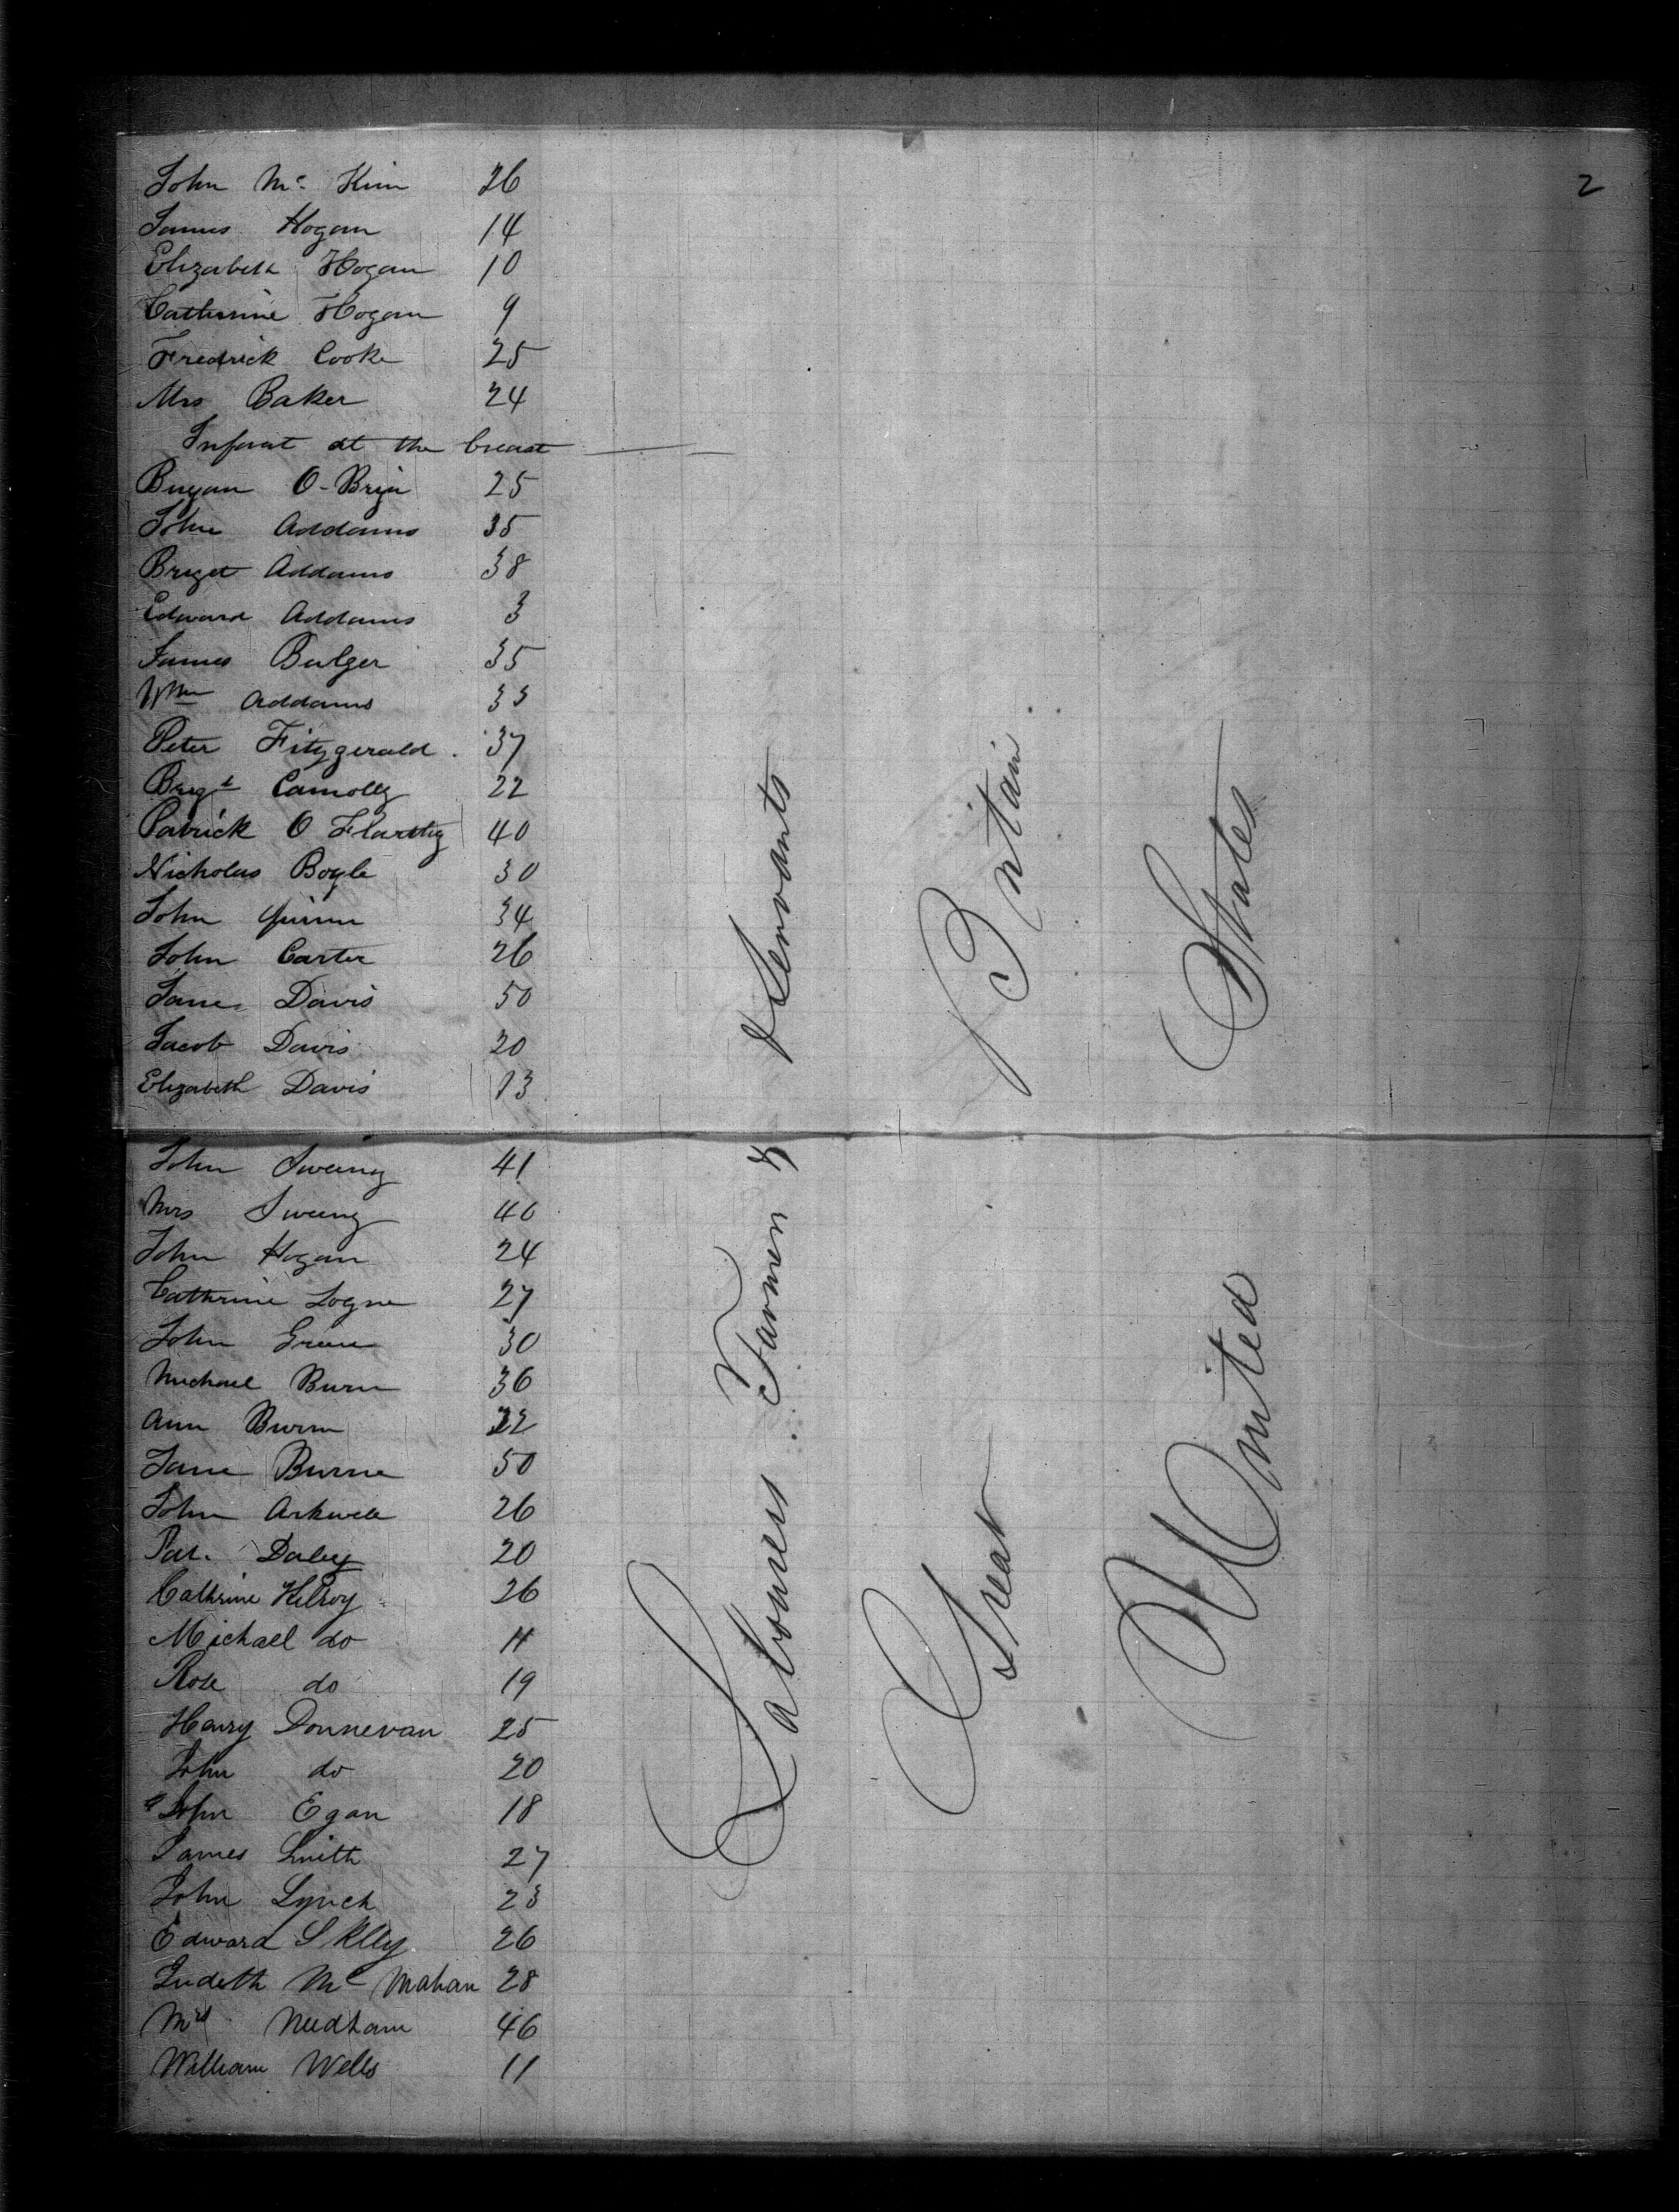 2
John Mc Kim 26
James Hogan 14
Elizabeth Hogan 10
Catherine Hogan 9
Fredrick Cooke 25
Mrs Baker 24
Infant at the breast
Bryan O-Brin 25
John Addams 35
Briget Addams 38
Edward Addams 3
James Bulger 35
Wm Addams 33
Peter Fitzgerald 37
Brigt Connolly 22
Patrick O Flarety 40
Nicholas Bogle 30
John Quinn 34
John Carter 26
Jane Davis 50
Jacob Davis 20
Elizabeth Davis 13
John Sweeny 41
Mrs Sweeny 40
John Hogan 24
Cathrine Logne 27
John Green 30
Michael Burn 36
Ann Burn 22
Jane Burne 50
John Arkwell 26
Pat. Daley 20
Cathrine Kilroy 26
Michael do 11
Rose do 19
Henry Donnevan 25
John do 20
John Egan 18
James Smith 27
John Lynch 23
Edward Sklly 26
Judeth Mc Mahan 28
Mrs Needham 46
William Wells 11
Labourers Farmers & Servants
Great Britain
United States